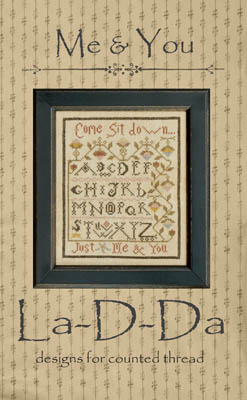 Me & You
Come Sit down...
ABCDEF
GHIJKL
MNOPQR
STUWXYZ
Just Me & You
La-D-Da
designs for counted thread